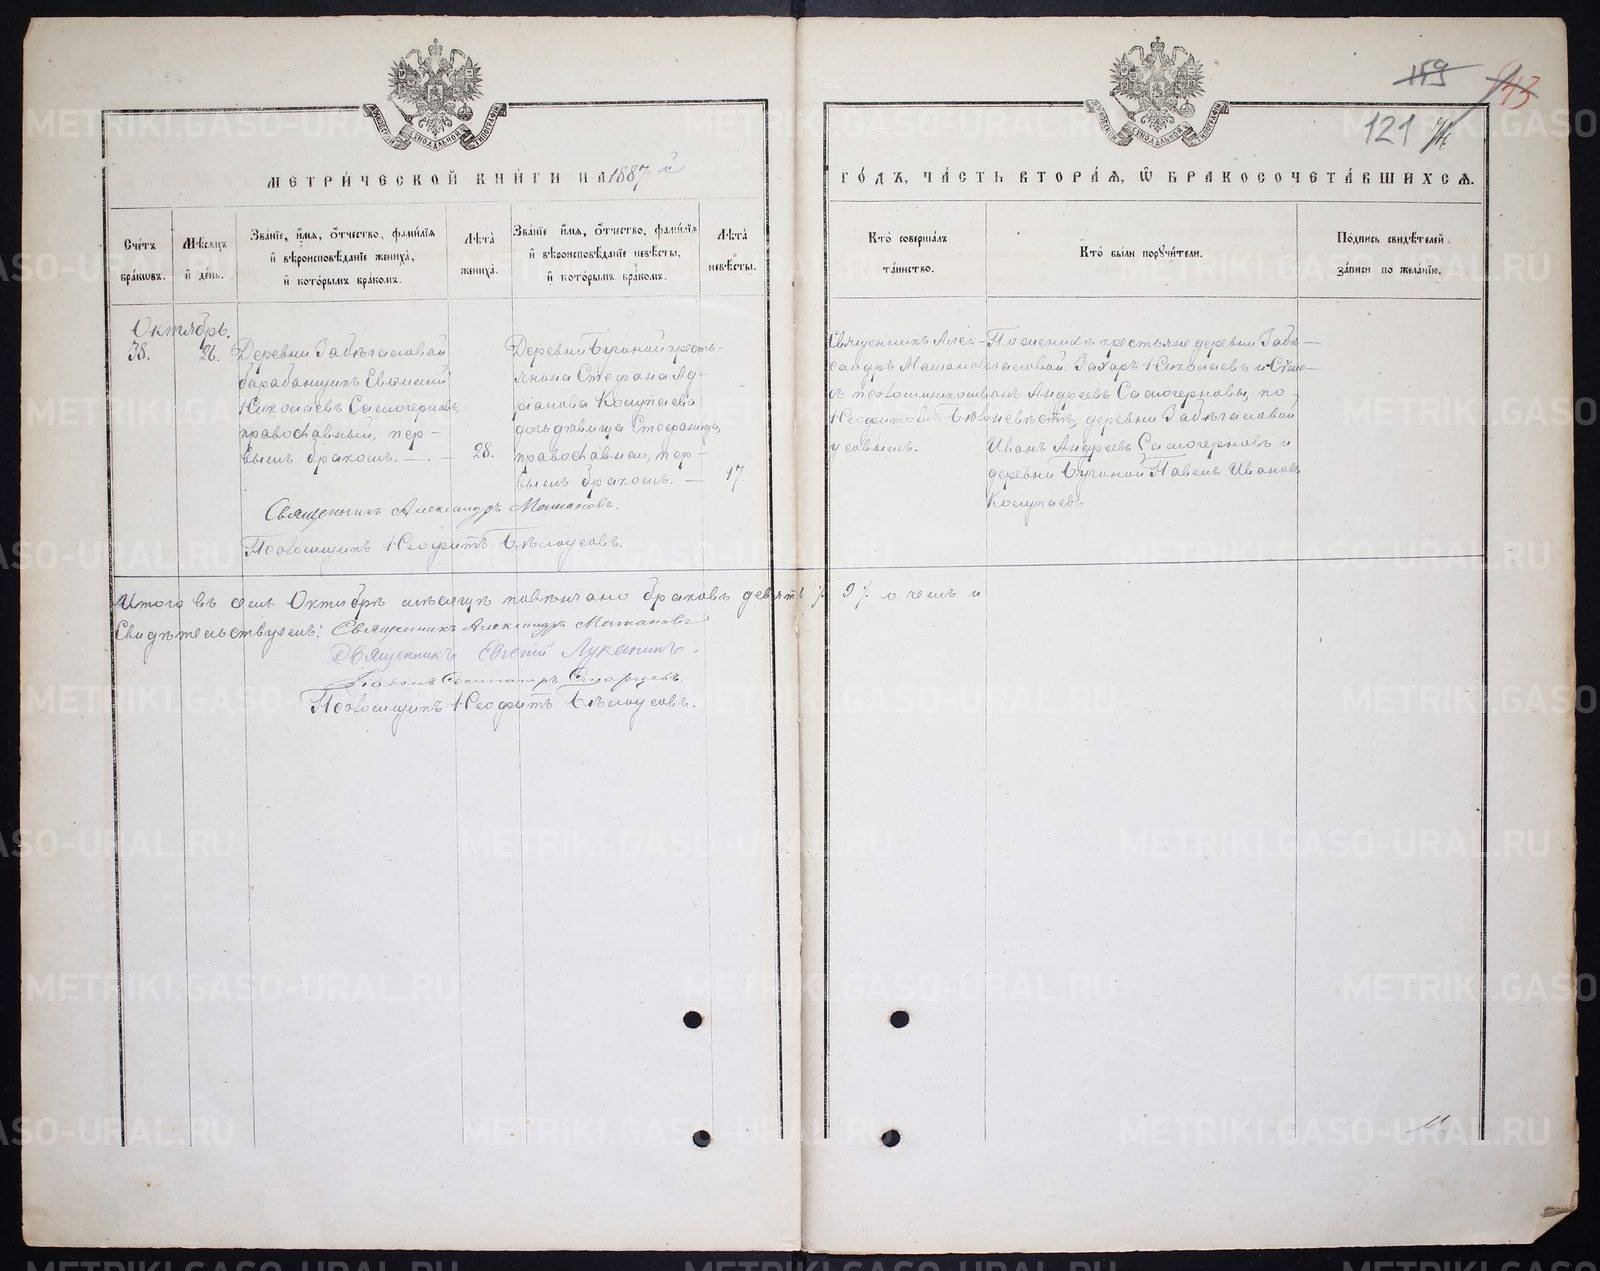 159
143
121
МЕТРИЧЕСКОЙ КНИГИ НА 1887 й
ГОДЪ, ЧАСТЬ ВТОРАѦ, Ѡ БРАКОСОЧЕТАВШИХСѦ.
МОСКОВСКОЙ СѴНОДАЛЬНОЙ ТИПОГРАФІИ
МОСКОВСКОЙ СѴНОДАЛЬНОЙ ТИПОГРАФІИ
Счетъ браковъ.
Мѣсѧцъ и день.
Званіе, имѧ, отчество, фамиліѧ и вѣроисповѣданіе жениха, и которымъ бракомъ.
Лѣта жениха.
Званіе имѧ, отчество, фамиліѧ и вѣроисповѣданіе невѣсты, и которымъ бракомъ.
Лѣта невѣсты.
Кто совершалъ таинство.
Кто были поручители.
Подпись свидѣтелей записи по желанію.
Октябрь.
38.
26.
Деревни Забѣгаловой
барабанщикъ Евгений
Николаевъ Самочерновъ,
православный, пер-
вымъ бракомъ. —
28.
Деревни Бугоной кресть-
янина Стефана Ад-
ріанова Косупаева
дочь дѣвица Стефанида,
православная, пер-
вымъ бракомъ. —
17.
Священникъ Алек-
сандръ Машановъ
съ псаломщикомъ
Неофитомъ Бѣло-
усовымъ.
По женихѣ крестьяне деревни Забѣ-
галовой Захаръ Николаевъ и Сѵме-
онъ Андреевъ Самочерновы, по
невѣстѣ, деревни Забѣгаловой
Иванъ Андреевъ Самочерновъ и
деревни Бугоной Павелъ Ивановъ
Косупаевъ
Священникъ Александръ Машановъ.
Псаломщикъ Неофитъ Бѣлоусовъ.
Итого въ семъ Октябрѣ мѣсяцѣ повѣнчано браковъ девять /9/ о чемъ и
Свидѣтельствуемъ: Священникъ Александръ Машановъ
Священникъ Евгеній Луканинъ.
Псаломщикъ Неофитъ Бѣлоусовъ.
METRIKI.GASO-URAL.RU